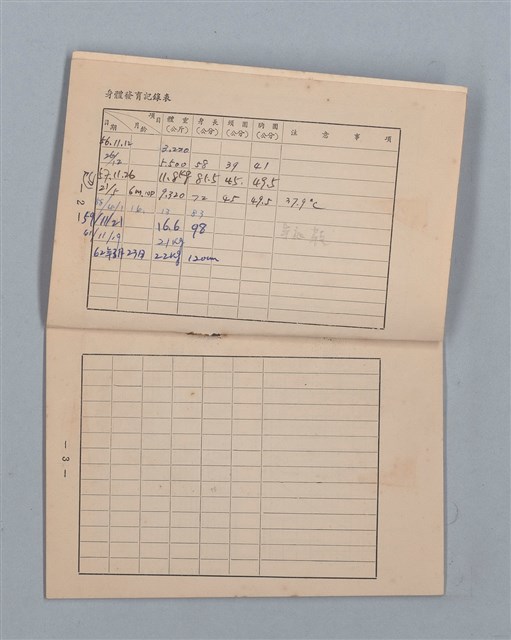 身體發育記錄表
項目 體重 身長 頭圍 胸圍 注意事項
日期 月齡 (公斤) (公分) (公分) (公分)
56.11.12 3.220
5.500 58 39 41
57.11.26 11.8kg 81.5 45. 49.5
21/5 9.320 72 45 49.5 37.9°C
12 83
59/11/21 16.6 98
61/11/ 21kg
62年3月23日 22kg 120cm
— 2 —
— 3 —